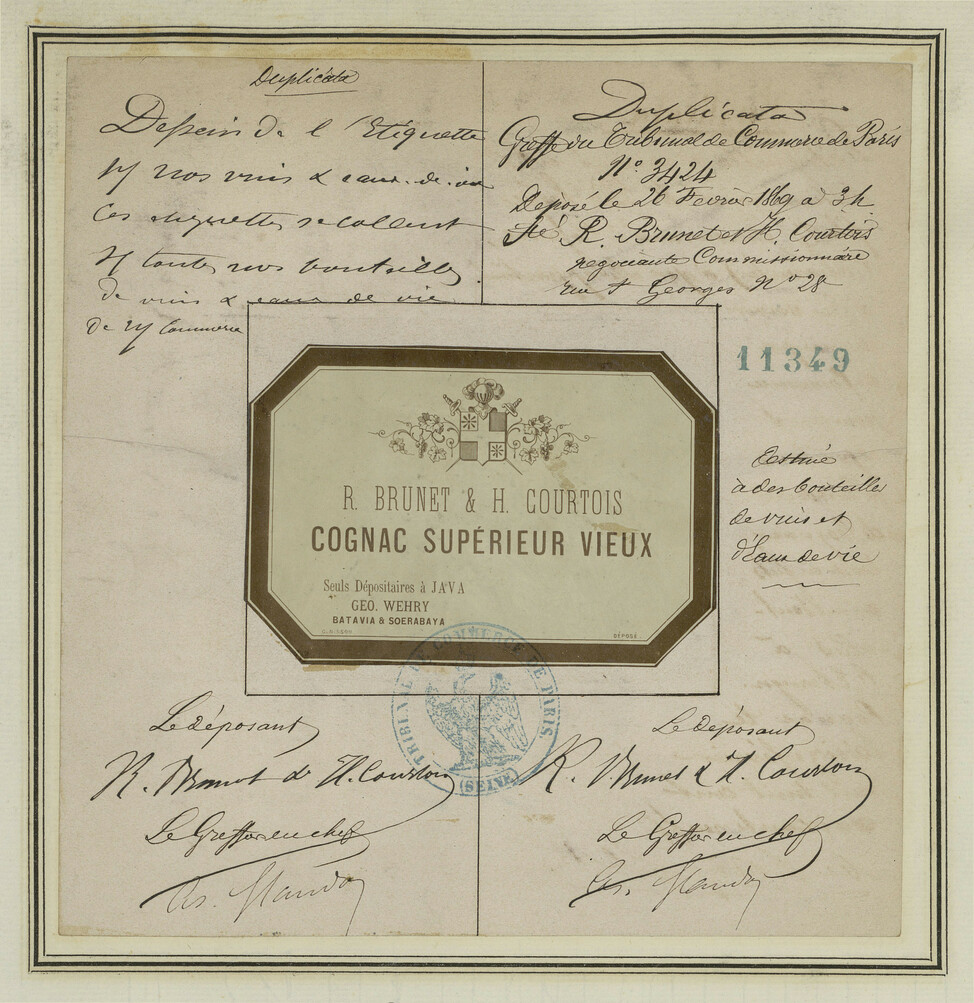 Duplicata
Dessin de l'Etiquette
nos vins & eaux-de-vie
Ces etiquettes se collent
toutes nos bouteilles
de vins & eaux de vie
de Commerce
Duplicata
Greffe du Tribunal de Commerce de Paris
N° 3424
Déposé le 26 Fevrier 1869 à 3h
R. Brunet et H. Courtois
négociants Commissionnaire
rue St Georges N° 28
11349
à des bouteilles
de vins et
d'Eaux de vie
R. BRUNET & H. COURTOIS
COGNAC SUPÉRIEUR VIEUX
Seuls Dépositaires à JAVA
GEO. WEHRY
BATAVIA & SOERABAYA
DÉPOSÉ.
TRIBUNAL DE COMMERCE DE PARIS.
(SEINE)
Le déposant
R. Brunet & H. Courtois
Le Greffier en chef
Le déposant
R. Brunet & H. Courtois
Le Greffier en chef